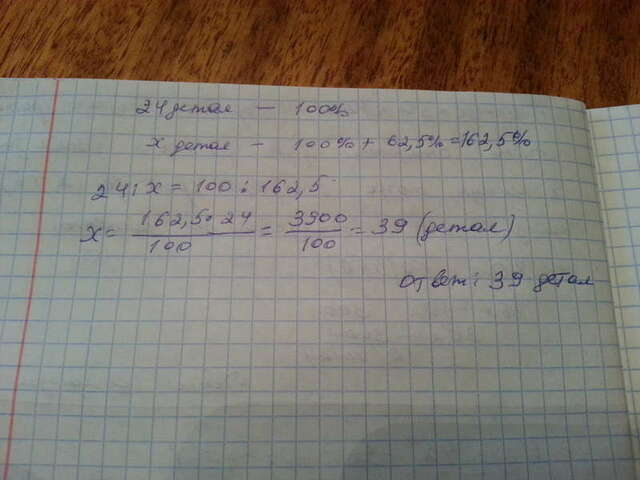 24 детал — 100%
х детал — 100% + 62,5% = 162,5%
24 : х = 100 : 162,5
х = 162,5 · 24 / 100 = 3900 / 100 = 39 (детал)
ответ : 39 детал